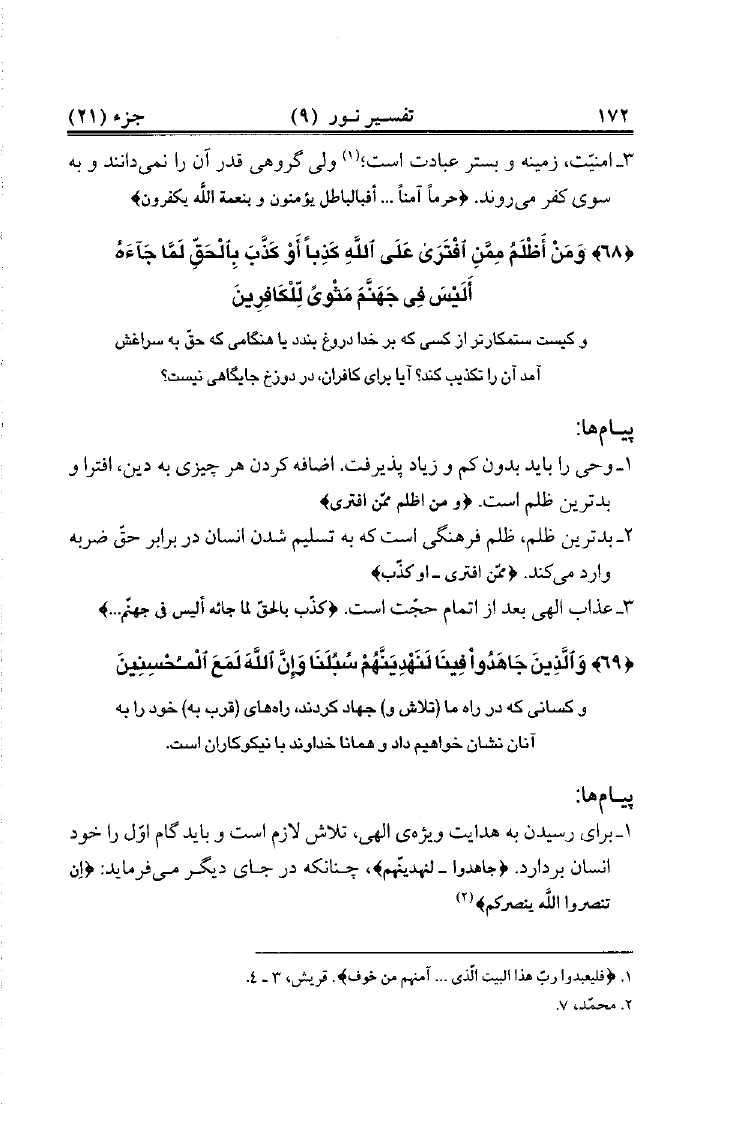 ۱۷۲ تفسیر نور (۹) جزء (۲۱)
۳ـ امنیّت، زمینه و بستر عبادت است؛(۱) ولی گروهی قدر آن را نمی‌دانند و به
سوی کفر می‌روند. ﴿حرماً آمناً ... أفبالباطل یؤمنون و بنعمة اللّه یکفرون﴾
﴿۶۸﴾ وَمَنْ أَظْلَمُ مِمَّنِ افْتَرَىٰ عَلَى ٱللَّهِ كَذِباً أَوْ كَذَّبَ بِٱلْحَقِّ لَمَّا جَآءَهُ
أَلَيْسَ فِى جَهَنَّمَ مَثْوىً لِّلْكَافِرِينَ
و کیست ستمکارتر از کسی که بر خدا دروغ بندد یا هنگامی که حقّ به سراغش
آمد آن را تکذیب کند؟ آیا برای کافران، در دوزخ جایگاهی نیست؟
پیـام‌ها:
۱ـ وحی را باید بدون کم و زیاد پذیرفت. اضافه کردن هر چیزی به دین، افترا و
بدترین ظلم است. ﴿و من اظلم ممّن افتری﴾
۲ـ بدترین ظلم، ظلم فرهنگی است که به تسلیم شدن انسان در برابر حقّ ضربه
وارد می‌کند. ﴿ممّن افتری ـ او کذّب﴾
۳ـ عذاب الهی بعد از اتمام حجّت است. ﴿کذّب بالحقّ لما جائه ألیس فی جهنّم...﴾
﴿۶۹﴾ وَٱلَّذِينَ جَاهَدُواْ فِينَا لَنَهْدِيَنَّهُمْ سُبُلَنَا وَإِنَّ ٱللَّهَ لَمَعَ ٱلْمُحْسِنِينَ
و کسانی که در راه ما (تلاش و) جهاد کردند، راه‌های (قرب به) خود را به
آنان نشان خواهیم داد و همانا خداوند با نیکوکاران است.
پیـام‌ها:
۱ـ برای رسیدن به هدایت ویژه‌ی الهی، تلاش لازم است و باید گام اوّل را خود
انسان بردارد. ﴿جاهدوا ـ لنهدینّهم﴾، چنانکه در جای دیگر می‌فرماید: ﴿إن
تنصروا اللّه ینصرکم﴾(۲)
۱. ﴿فلیعبدوا ربّ هذا البیت الّذی ... آمنهم من خوف﴾. قریش، ۳ ـ ٤.
۲. محمّد، ۷.